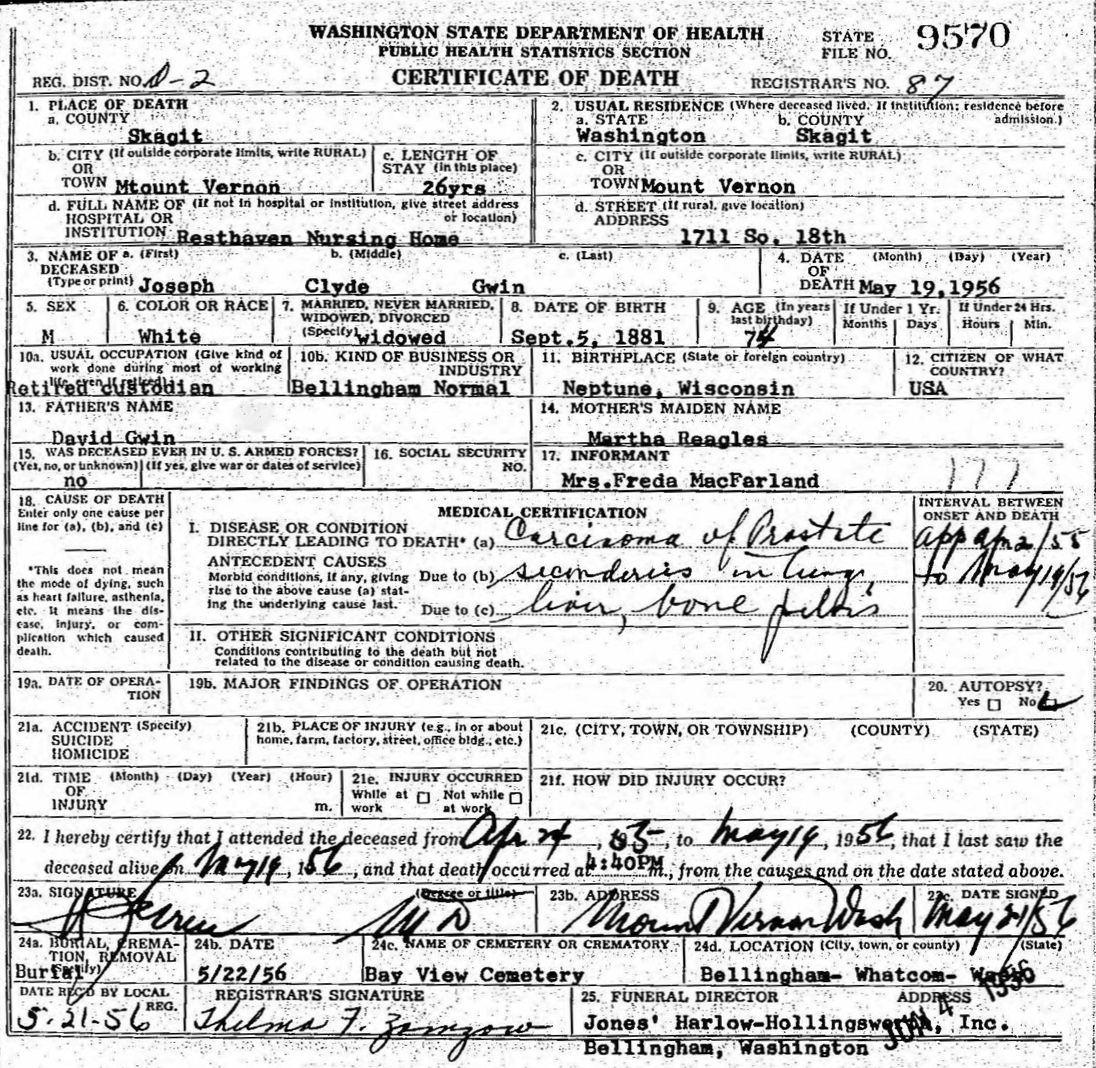 WASHINGTON STATE DEPARTMENT OF HEALTH
PUBLIC HEALTH STATISTICS SECTION
CERTIFICATE OF DEATH
STATE FILE NO. 9570
REG. DIST. NO. D-2
REGISTRAR'S NO. 87
1. PLACE OF DEATH
a. COUNTY
Skagit
2. USUAL RESIDENCE (Where deceased lived. If institution: residence before admission.)
a. STATE b. COUNTY
Washington Skagit
b. CITY (If outside corporate limits, write RURAL)
OR
TOWN Mtount Vernon
c. LENGTH OF
STAY (in this place)
26yrs
c. CITY (If outside corporate limits, write RURAL)
OR
TOWN Mount Vernon
d. FULL NAME OF (If not in hospital or institution, give street address
HOSPITAL OR or location)
INSTITUTION Resthaven Nursing Home
d. STREET (If rural, give location)
ADDRESS
1711 So. 18th
3. NAME OF a. (First) b. (Middle) c. (Last)
DECEASED
(Type or print) Joseph Clyde Gwin
4. DATE (Month) (Day) (Year)
OF
DEATH May 19,1956
5. SEX
M
6. COLOR OR RACE
White
7. MARRIED, NEVER MARRIED,
WIDOWED, DIVORCED
(Specify) widowed
8. DATE OF BIRTH
Sept.5, 1881
9. AGE (In years
last birthday)
74
If Under 1 Yr.
Months Days
If Under 24 Hrs.
Hours Min.
10a. USUAL OCCUPATION (Give kind of
work done during most of working
life, even if retired)
Retired custodian
10b. KIND OF BUSINESS OR
INDUSTRY
Bellingham Normal
11. BIRTHPLACE (State or foreign country)
Neptune, Wisconsin
12. CITIZEN OF WHAT
COUNTRY?
USA
13. FATHER'S NAME
David Gwin
14. MOTHER'S MAIDEN NAME
Martha Reagles
15. WAS DECEASED EVER IN U. S. ARMED FORCES?
(Yes, no, or unknown) (If yes, give war or dates of service)
no
16. SOCIAL SECURITY
NO.
17. INFORMANT
Mrs.Freda MacFarland
177
18. CAUSE OF DEATH
Enter only one cause per
line for (a), (b), and (c)
*This does not mean
the mode of dying, such
as heart failure, asthenia,
etc. It means the dis-
ease, injury, or com-
plication which caused
death.
MEDICAL CERTIFICATION
I. DISEASE OR CONDITION
DIRECTLY LEADING TO DEATH* (a) Carcinoma of Prostate
ANTECEDENT CAUSES
Morbid conditions, if any, giving
rise to the above cause (a) stat-
ing the underlying cause last.
Due to (b) seconderies in lungs,
Due to (c) liver, bone pelvis
II. OTHER SIGNIFICANT CONDITIONS
Conditions contributing to the death but not
related to the disease or condition causing death.
INTERVAL BETWEEN
ONSET AND DEATH
app apr 2/55
to May 19/56
19a. DATE OF OPERA-
TION
19b. MAJOR FINDINGS OF OPERATION
20. AUTOPSY?
Yes No
21a. ACCIDENT (Specify)
SUICIDE
HOMICIDE
21b. PLACE OF INJURY (e.g., in or about
home, farm, factory, street, office bldg., etc.)
21c. (CITY, TOWN, OR TOWNSHIP) (COUNTY) (STATE)
21d. TIME (Month) (Day) (Year) (Hour)
OF
INJURY m.
21e. INJURY OCCURRED
While at Not while
work at work
21f. HOW DID INJURY OCCUR?
22. I hereby certify that I attended the deceased from Apr. 24, 55, to May 19, 1956, that I last saw the
deceased alive on May 19, 1956, and that death occurred at 4:40PM m., from the causes and on the date stated above.
23a. SIGNATURE (Degree or title)
M D
23b. ADDRESS
Mount Vernon Wash
23c. DATE SIGNED
May 21/56
24a. BURIAL, CREMA-
TION, REMOVAL
(Specify)
Burial
24b. DATE
5/22/56
24c. NAME OF CEMETERY OR CREMATORY
Bay View Cemetery
24d. LOCATION (City, town, or county) (State)
Bellingham- Whatcom-
DATE REC'D BY LOCAL
REG.
5-21-56
REGISTRAR'S SIGNATURE
Thelma F. Zamzow
25. FUNERAL DIRECTOR ADDRESS
Jones' Harlow-Hollingsworth, Inc.
Bellingham, Washington
JUN 4 1956